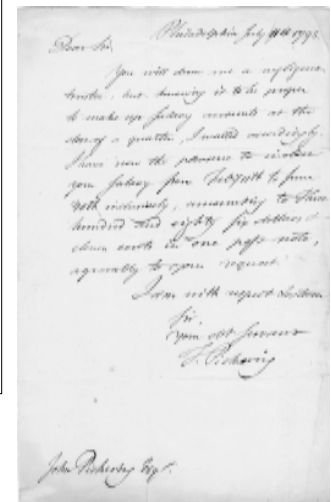 Philadelphia July 11th 1795.
Dear Sir,
You will deem me a negligent
but knowing it to be proper
to make up salary accounts at the
close of a quarter, I waited accordingly.
I have now the pleasure to inclose
your salary from to June
30th inclusively, amounting to three
hundred and eighty six dollars &
eleven cents in one post-note,
agreeably to your request.
I am with respect & esteem
Sir,
your obt servant
T. Pickering
John Pickering Esqr.